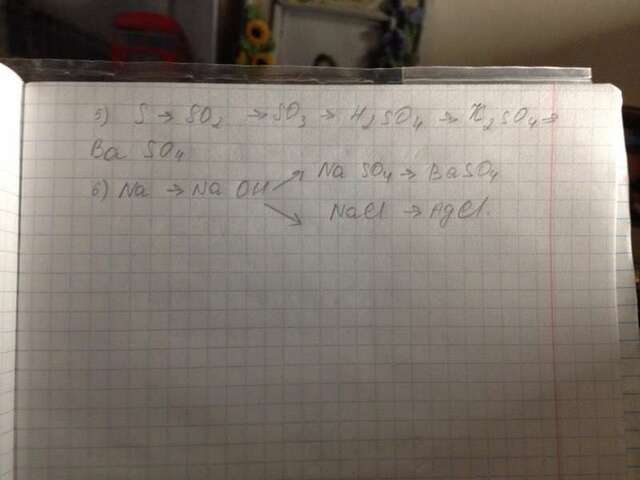 5) S → SO2 → SO3 → H2SO4 → K2SO4 →
BaSO4
6) Na → NaOH ↗ NaSO4 → BaSO4
↘ NaCl → AgCl.